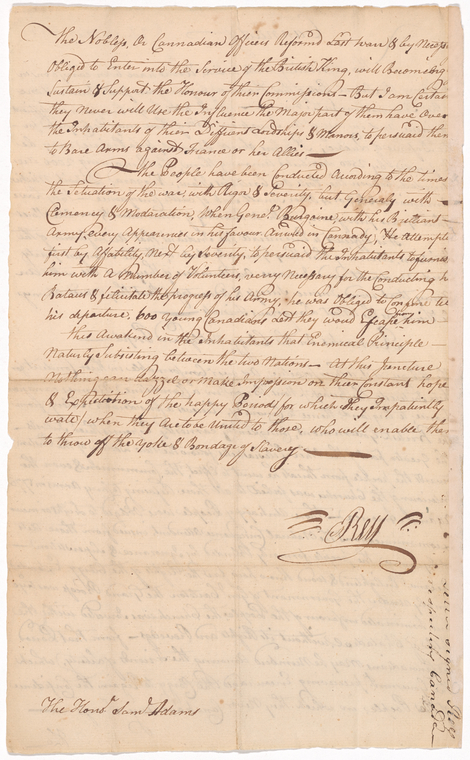 The Nobless, Or Cannadian Officers Reformd Last warr & by Necess
Obliged to Enter into the Service of the British King, will Becomeing
Sustain & Support the Honour of thier Commissions — But I am Certain
they Never will Use the Influence the Major part of them have Over
the Inhabitants of their Diffirant Lordships & Manors, to persuaid them
to Bare Arms against France or her Allies —
The People have been Conducted Acording to the times
the Setuation of the war, with Rigor & Severity, but Generaly with —
Clemency & Modaration, When Genel Burgoine, with his Brittans
Army, Every Appearances in his favour Arived in Cannady, He Attempted
first by Affability, Next by Severity, to persuaid the Inhabitants to furnish
him with A Number of Volunteers, verry Necessary for the Conducting
Bataus & felicitate the progress of his Army, he was Obliged to
his departure, 600 Young Canadians Lest they woud Escape him —
this Awakend in the Inhabitants that Enemical Principle —
Naturly Subsisting between the two Nations — At this Juncture
Nothing can Dazzel or Make Impression on thier Constant hope
& Expectiction of the happy Period (for which they Impatiently
wate) when they Are to be United to those, who will enable them
to throw off the Yoke & Bondage of Slavery —
The Honl. Saml. Adams
respecting Canada